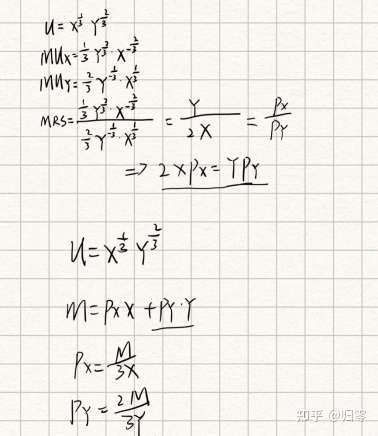 U = x^{\frac{1}{3}} Y^{\frac{2}{3}}
MUx = \frac{1}{3} Y^{\frac{2}{3}} · x^{-\frac{2}{3}}
MUY = \frac{2}{3} Y^{-\frac{1}{3}} · x^{\frac{1}{3}}
MRS = \frac{\frac{1}{3} Y^{\frac{2}{3}} · x^{-\frac{2}{3}}}{\frac{2}{3} Y^{-\frac{1}{3}} · x^{\frac{1}{3}}} = \frac{Y}{2X} = \frac{Px}{PY}
=> 2XPx = YPY
U = x^{\frac{1}{3}} Y^{\frac{2}{3}}
M = PxX + PY·Y
Px = \frac{M}{3X}
PY = \frac{2M}{3Y}
知乎 @归零